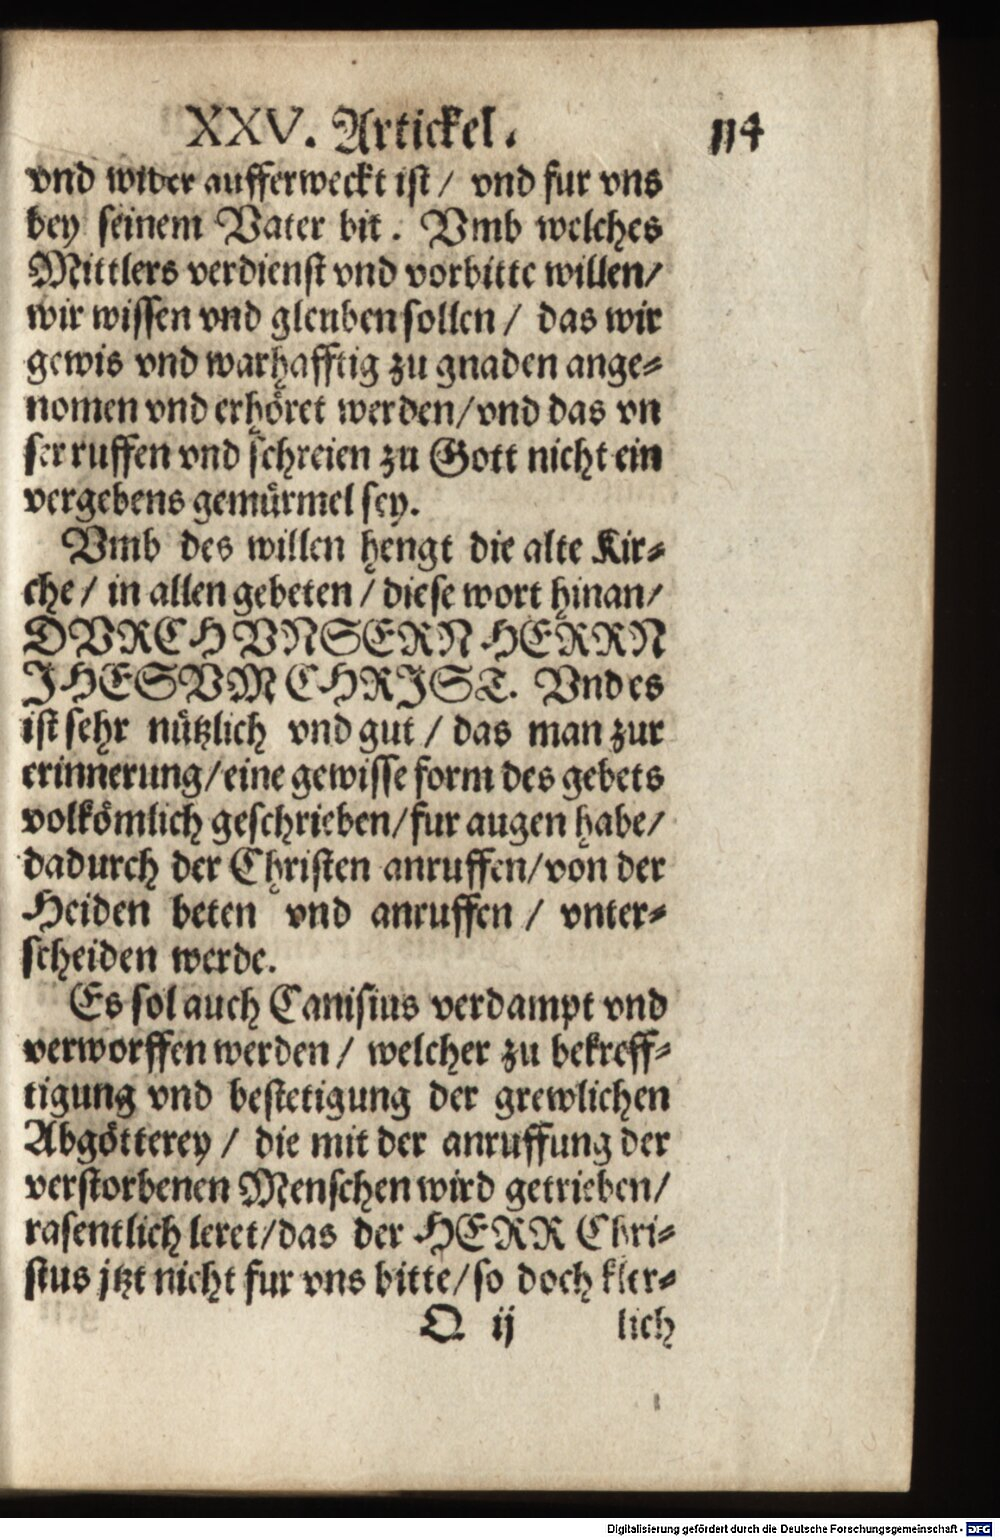 XXV. Artickel. 114
vnd wider aufferweckt ist / vnd fur vns
bey seinem Vater bit. Vmb welches
Mittlers verdienst vnd vorbitte willen/
wir wissen vnd gleuben sollen / das wir
gewis vnd warhafftig zu gnaden ange⸗
nomen vnd erhöret werden/vnd das vn
ser ruffen vnd schreien zu Gott nicht ein
vergebens gemürmel sey.
Vmb des willen hengt die alte Kir⸗
che / in allen gebeten / diese wort hinan/
DVRCH VNSERN HERRN
JHESVM CHRJST. Vnd es
ist sehr nützlich vnd gut / das man zur
erinnerung/eine gewisse form des gebets
volkömlich geschrieben/fur augen habe/
dadurch der Christen anruffen/von der
Heiden beten vnd anruffen / vnter⸗
scheiden werde.
Es sol auch Canisius verdampt vnd
verworffen werden / welcher zu bekreff⸗
tigung vnd bestetigung der grewlichen
Abgötterey / die mit der anruffung der
verstorbenen Menschen wird getrieben/
rasentlich leret/das der HERR Chri⸗
stus jtzt nicht fur vns bitte/so doch kler⸗
Q ij lich
Digitalisierung gefördert durch die Deutsche Forschungsgemeinschaft - DFG